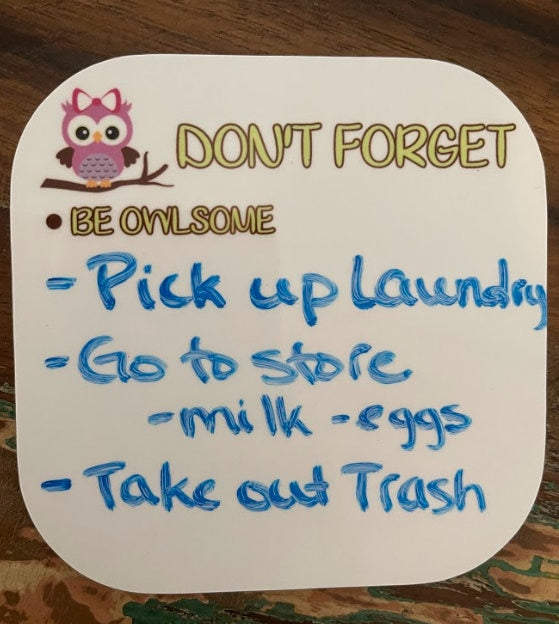 DON'T FORGET
• BE OWLSOME
- Pick up Laundry
- Go to store
- milk - eggs
- Take out Trash